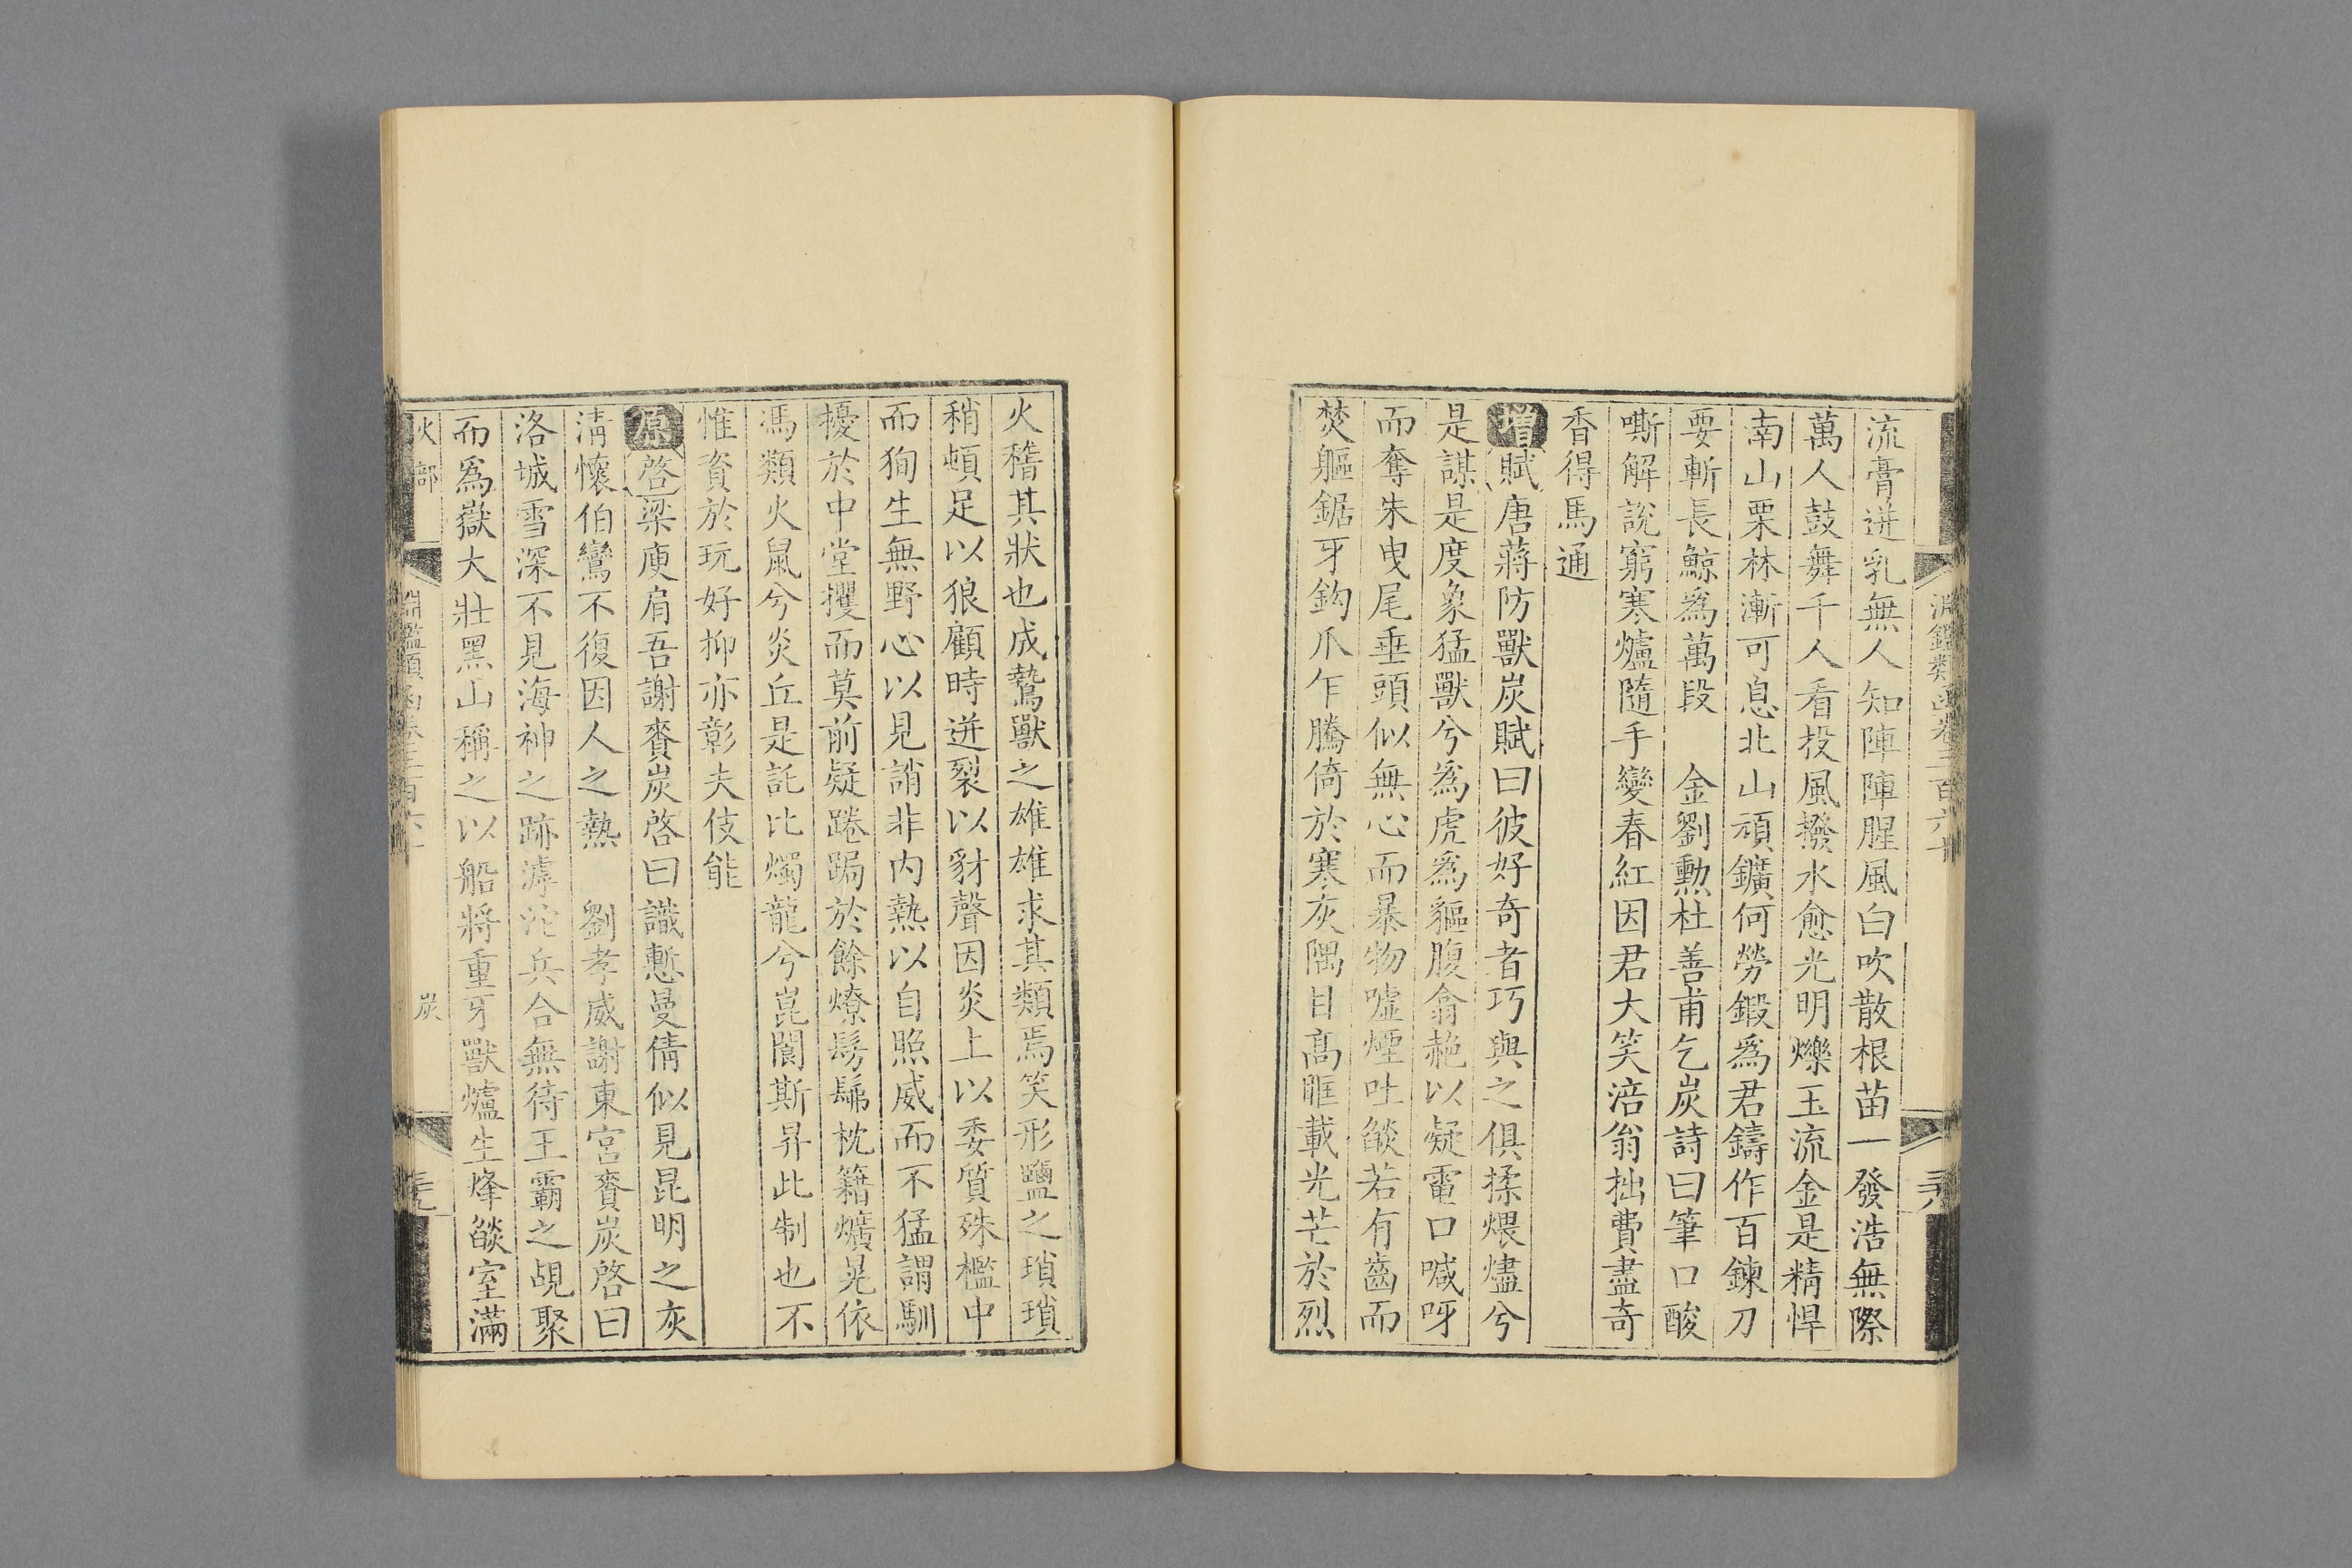 淵鑑類函卷三百六十
流膏迸乳無人知陣陣腥風自吹散根苗一發浩無際
萬人鼓舞千人看投風撥水愈光明爍玉流金是精悍
南山栗林漸可息北山頑鑛何勞鍛爲君鑄作百鍊刀
要斬長鯨爲萬段 金劉勳杜善甫乞炭詩曰筆口酸
嘶解說窮寒爐隨手變春紅因君大笑涪翁拙費盡奇
香得馬通
增賦唐蔣防獸炭賦曰彼好奇者巧與之俱揉煨燼兮
是謀是度象猛獸兮爲虎爲貙腹翕赩以疑電口喊呀
而奪朱曳尾垂頭似無心而暴物噓煙吐燄若有齒而
焚軀鋸牙鈎爪乍騰倚於寒灰隅目高眶載光芒於烈
火稽其狀也成鷙獸之雄雄求其類焉笑形鹽之瑣瑣
稍頓足以狼顧時迸裂以豺聲因炎上以委質殊檻中
而狥生無野心以見誚非内熱以自照威而不猛謂馴
擾於中堂攫而莫前疑踡跼於餘燎髣髴枕籍爌晃依
馮類火鼠兮炎丘是託比燭龍兮崑閬斯昇此制也不
惟資於玩好抑亦彰夫伎能
原啓梁庾肩吾謝賚炭啓曰識慙曼倩似見昆明之灰
淸懷伯鸞不復因人之熱 劉孝威謝東宮賚炭啓曰
洛城雪深不見海神之跡滹沱兵合無待王霸之覘聚
而爲嶽大壯黑山稱之以船將重牙獸爐生烽燄室滿
火部 淵鑑類函卷三百六十 炭